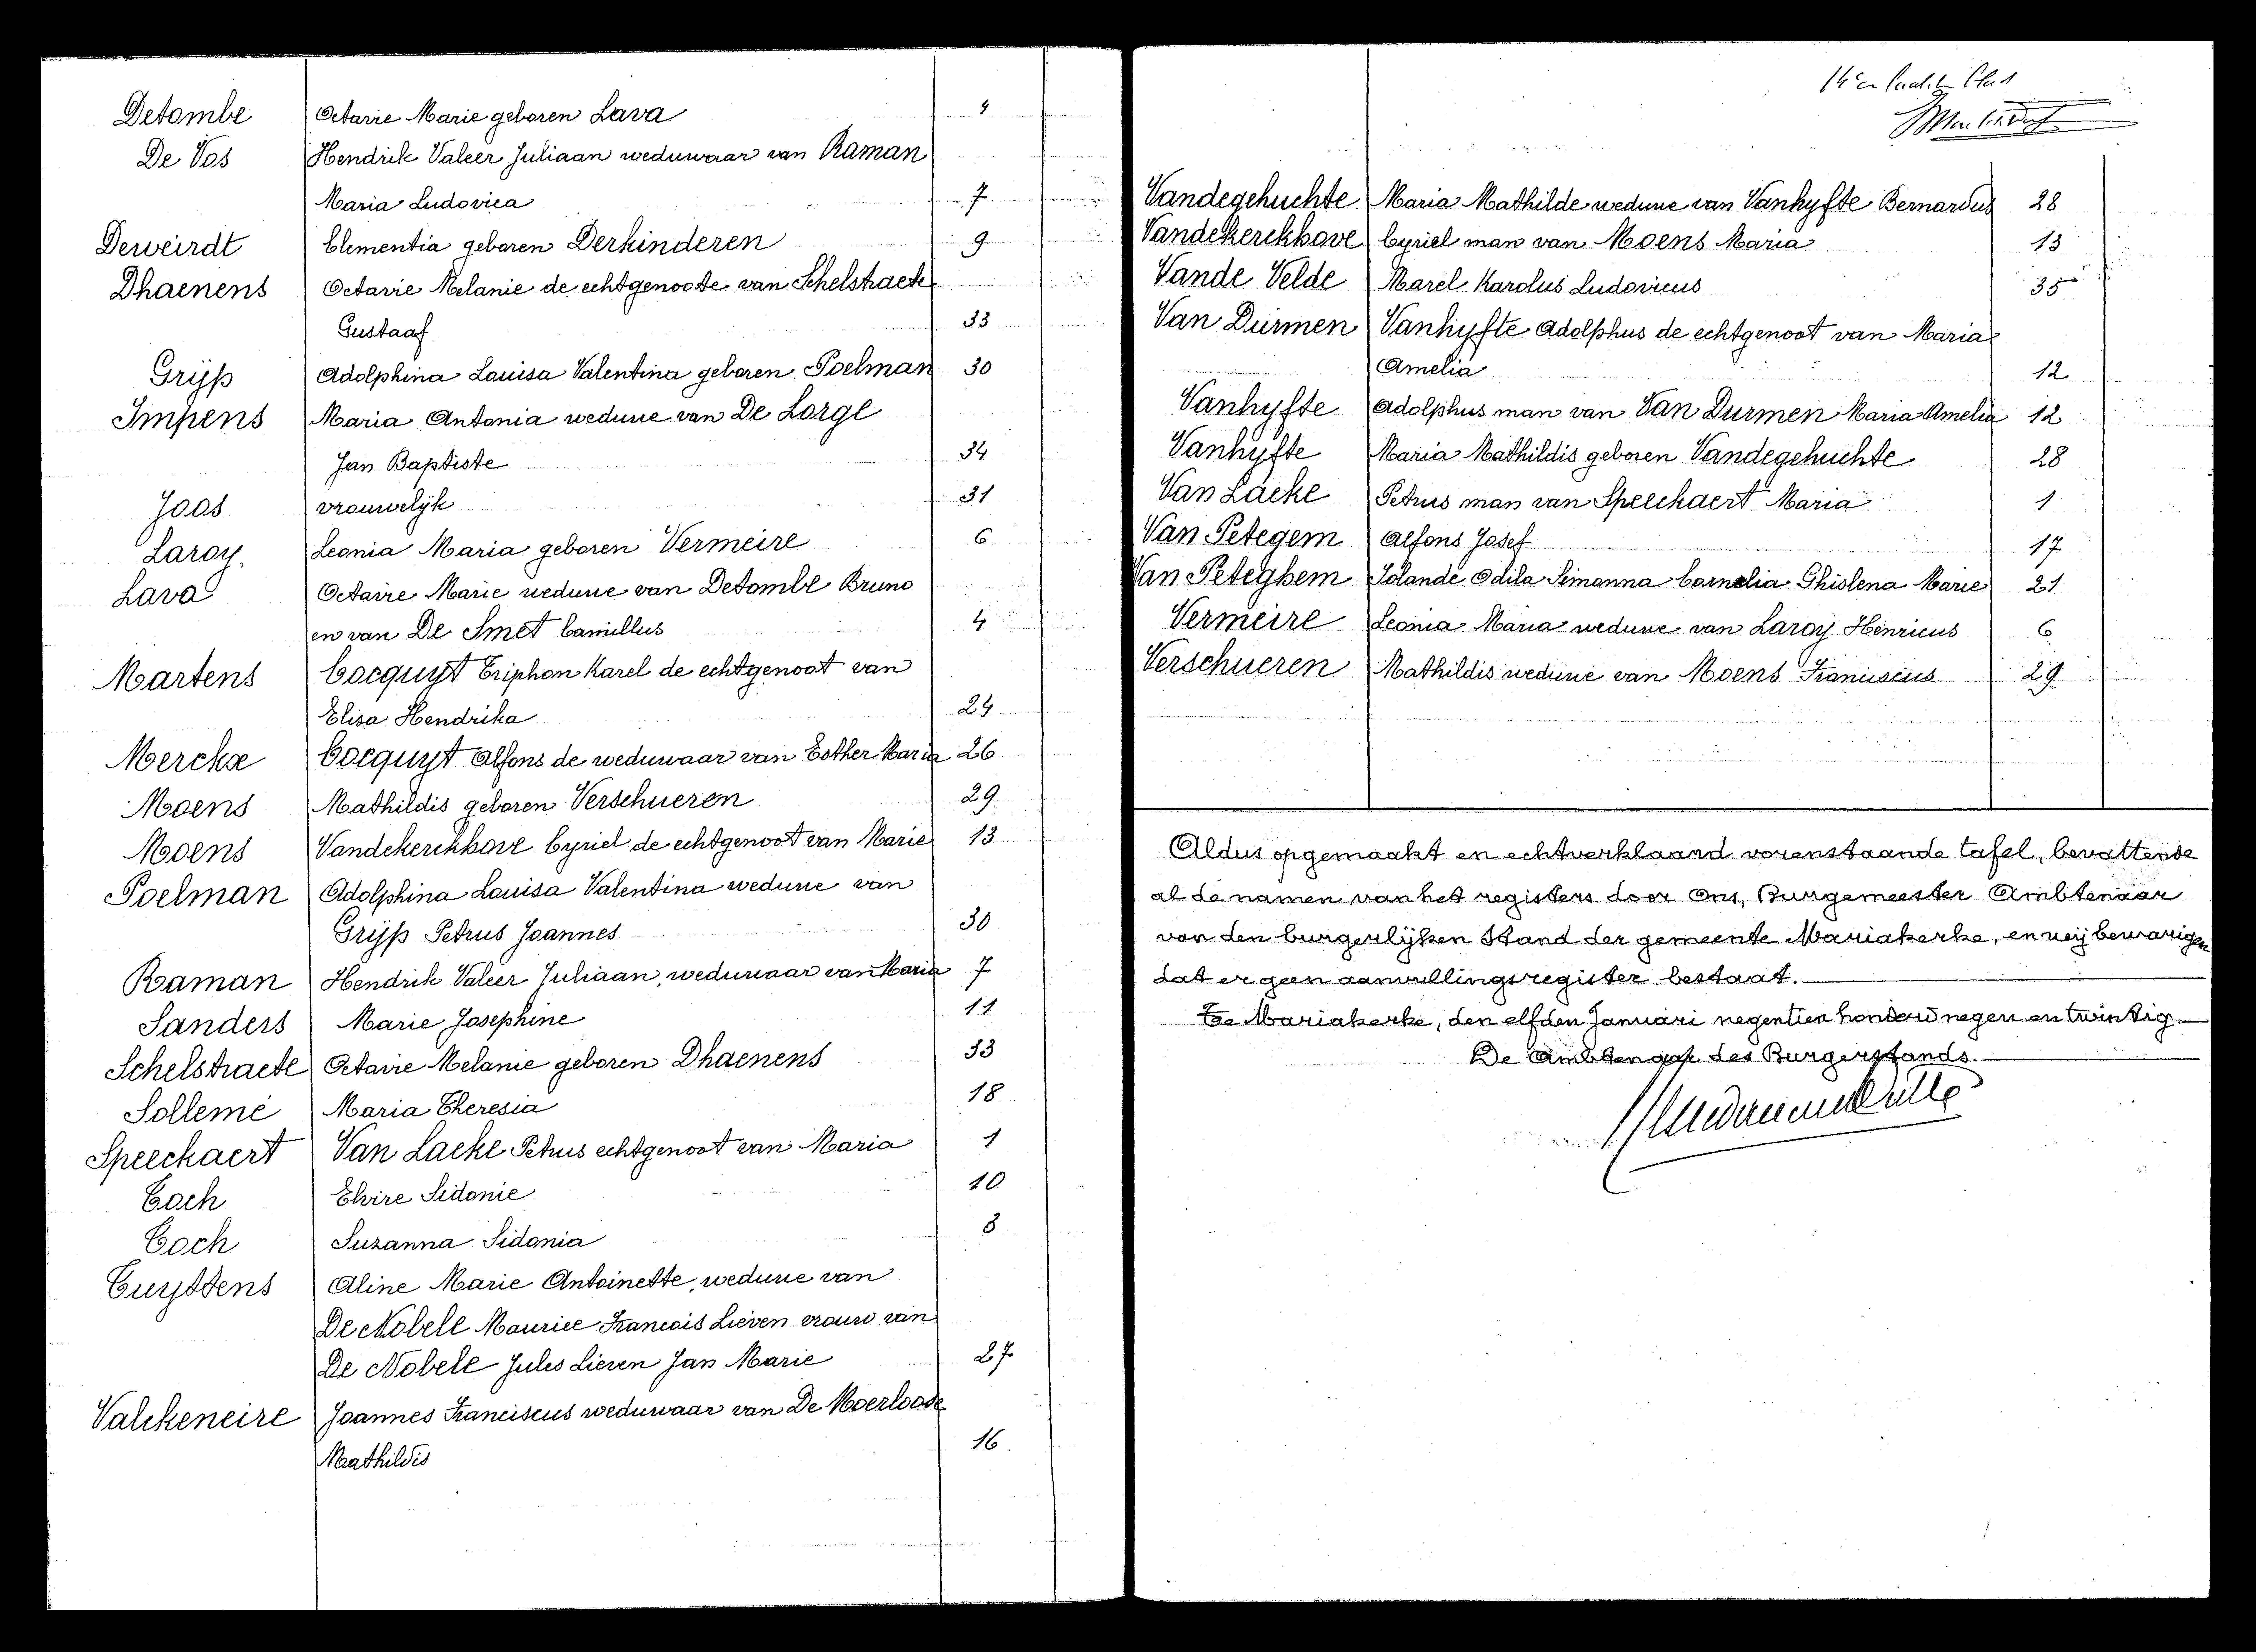 Detombe Octavie Marie geboren Lava 4
De Vos Hendrik Valeer Juliaan weduwaar van Raman
Maria Ludovica 7
Deweirdt Clementia geboren Derkinderen 9
Dhaenens Octavie Melanie de echtgenoote van Schelstraete
Gustaaf 33
Grijp Adolphina Louisa Valentina geboren Poelman 30
Impens Maria Antonia weduwe van De Lorge
Jan Baptiste 34
Joos vrouwelijk 31
Laroy. Leonia Maria geboren Vermeire 6
Lava Octavie Marie weduwe van Detombe Bruno
en van De Smet Camillus 4
Martens Cocquyt Triphon Karel de echtgenoot van
Elisa Hendrika 24
Merckx Cocquyt Alfons de weduwaar van Esther Maria 26
Moens Mathildis geboren Verschueren 29
Moens Vandekerckhove Cyriel de echtgenoot van Marie 13
Poelman Adolphina Louisa Valentina weduwe van
Grijp Petrus Joannes 30
Raman Hendrik Valeer Juliaan, weduwaar van Maria 7
Sanders Marie Josephine 11
Schelstraete Octavie Melanie geboren Dhaenens 33
Sollemé Maria Theresia 18
Speeckaert Van Laeke Petrus echtgenoot van Maria 1
Toch Elvire Sidonie 10
Toch Suzanna Sidonia 3
Tuyttens Aline Marie Antoinette, weduwe van
De Nobele Maurice Francois Lieven vrouw van
De Nobele Jules Lieven Jan Marie 27
Valckeneire Joannes Franciscus weduwaar van De Moerloose
Mathildis 16
Vandegehuchte Maria Mathilde weduwe van Vanhyfte Bernardus 28
Vandekerckhove Cyriel man van Moens Maria 13
Vande Velde Marel Karolus Ludovicus 35
Van Durmen Vanhyfte Adolphus de echtgenoot van Maria
Amelia 12
Vanhyfte Adolphus man van Van Durmen Maria Amelia 12
Vanhyfte Maria Mathildis geboren Vandegehuchte 28
Van Laeke Petrus man van Speeckaert Maria 1
Van Petegem Alfons Josef 17
Van Peteghem Iolande Odila Simonna Cornelia Ghislena Marie 21
Vermeire Leonia Maria weduwe van Laroy Henricus 6
Verschueren Mathildis weduwe van Moens Franciscus 29
Aldus opgemaakt en echtverklaard vorenstaande tafel, bevattende
al de namen van het registers door Ons, Burgemeester Ambtenaar
van den burgerlijken Stand der gemeente Mariakerke, en wij bevestigen
dat er geen aanvullingsregister bestaat.
Te Mariakerke, den elfden Januari negentien honderd negen en twintig.
De Ambtenaar des Burgerstands.